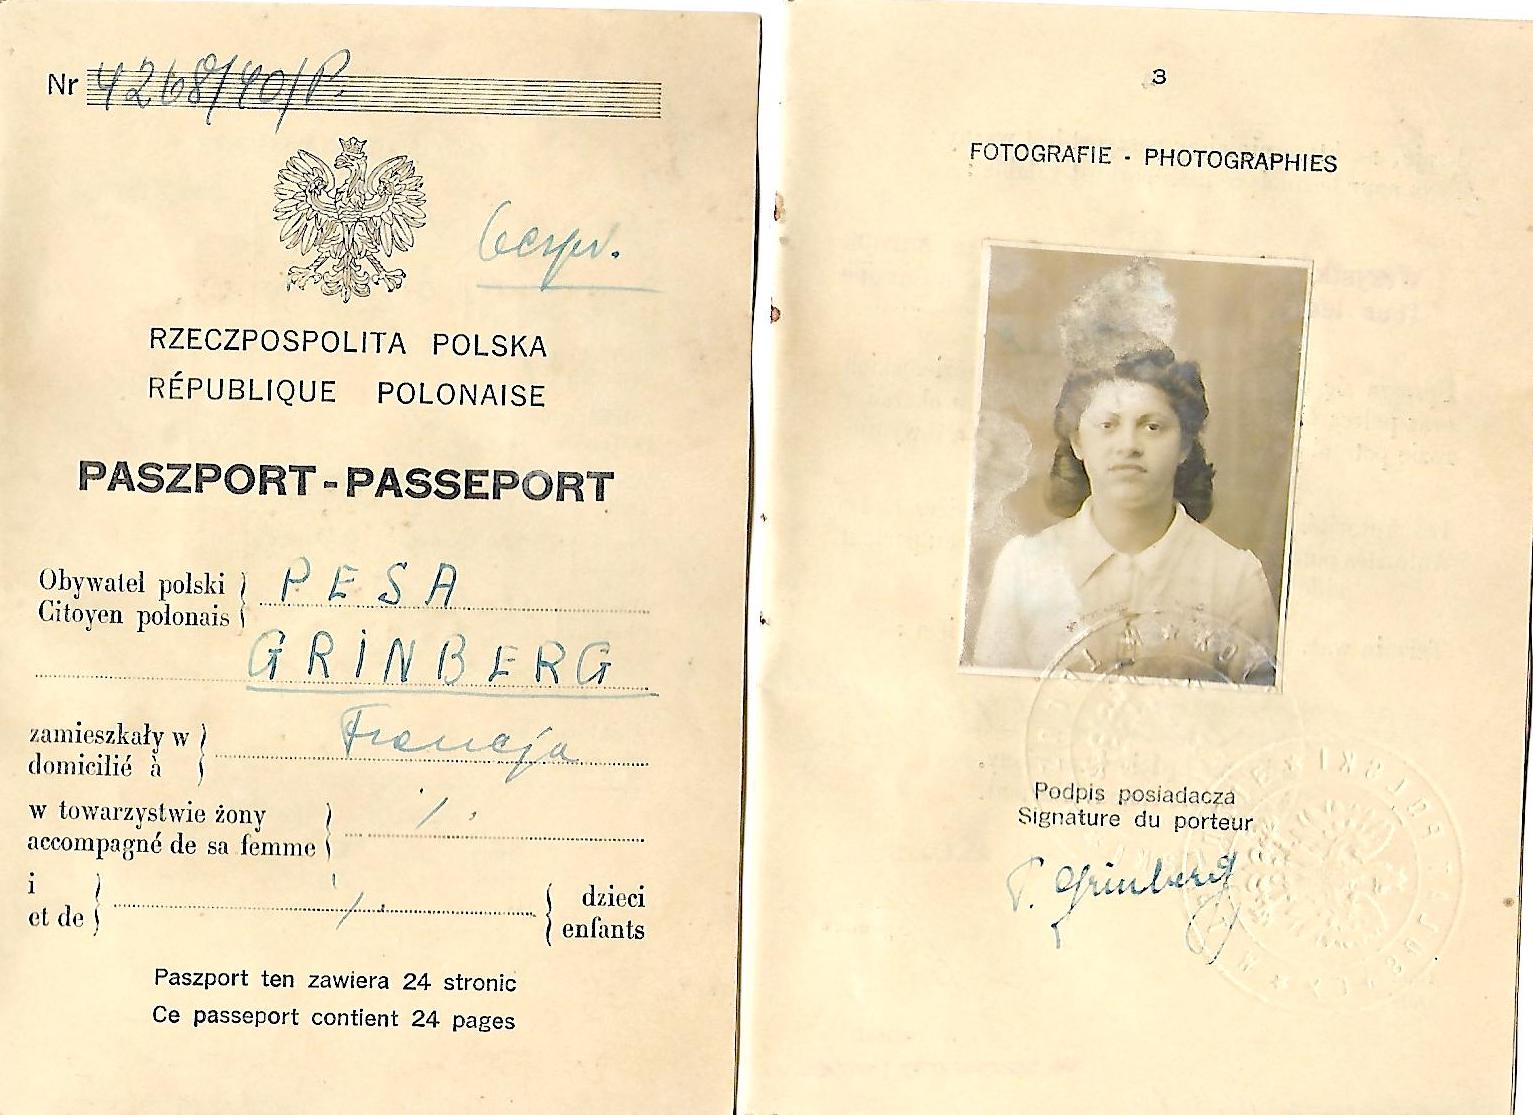 Nr 4268/40/P.
RZECZPOSPOLITA POLSKA
RÉPUBLIQUE POLONAISE
PASZPORT-PASSEPORT
Obywatel polski
Citoyen polonais
PESA
GRINBERG
zamieszkały w
domicilié à
Francja
w towarzystwie żony
accompagné de sa femme
i
et de
dzieci
enfants
Paszport ten zawiera 24 stronic
Ce passeport contient 24 pages
3
FOTOGRAFIE - PHOTOGRAPHIES
Podpis posiadacza
Signature du porteur
P. Grinberg